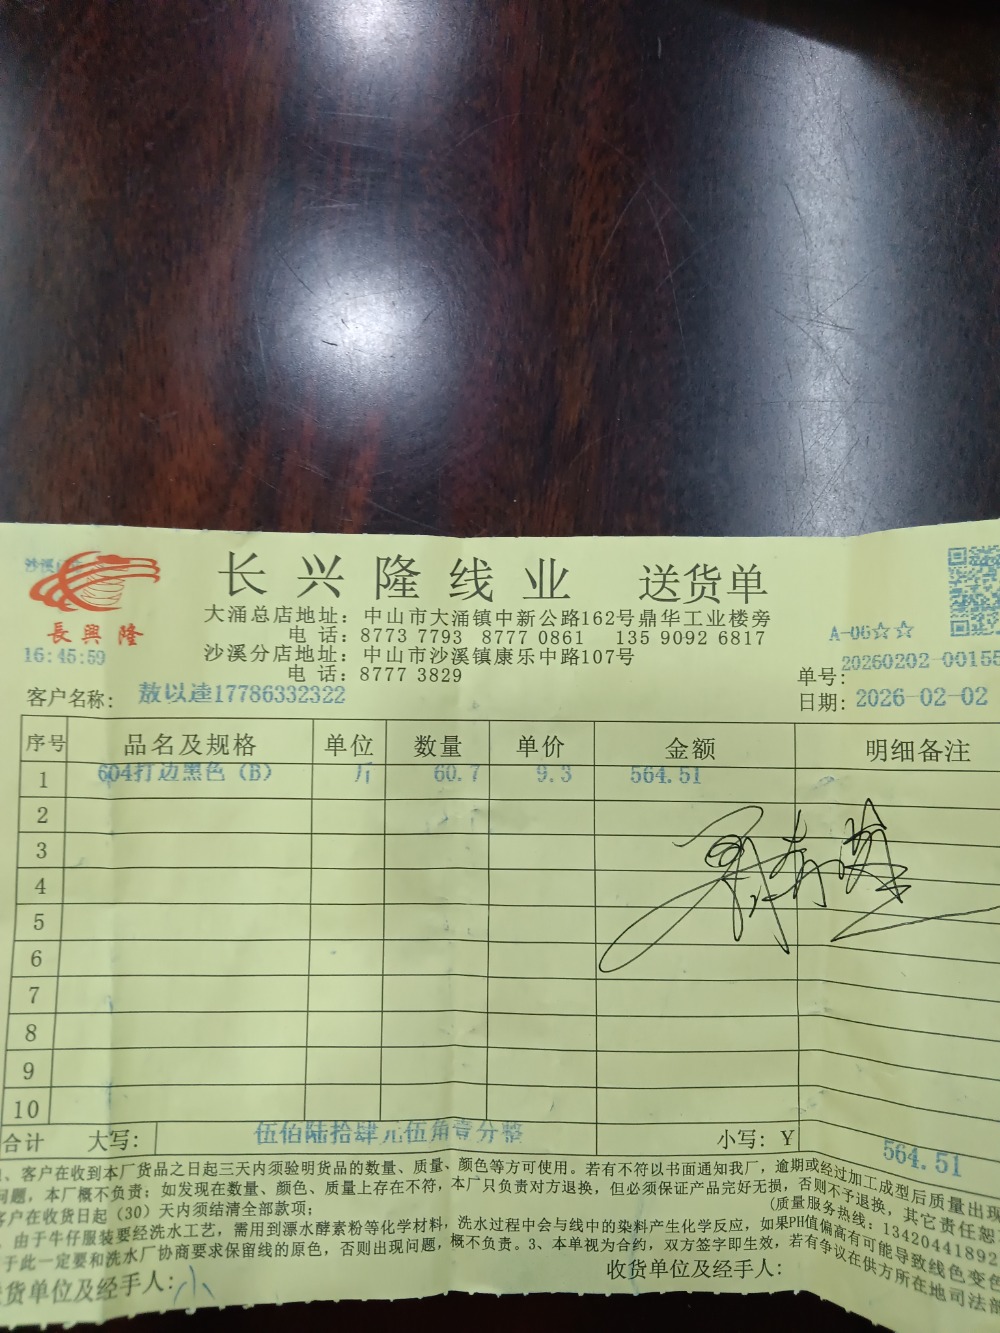 长兴隆线业 送货单
長興隆
16:45:59
大涌总店地址：中山市大涌镇中新公路162号鼎华工业楼旁
电 话：8773 7793 8777 0861 135 9092 6817
沙溪分店地址：中山市沙溪镇康乐中路107号
电 话：8777 3829
A-06☆☆
单号：20260202-00155
日期：2026-02-02
客户名称：敖以逵17786332322
序号 品名及规格 单位 数量 单价 金额 明细备注
1 604打边黑色（B） 斤 60.7 9.3 564.51
2
3
4
5
6
7
8
9
10
合计 大写：伍佰陆拾肆元伍角壹分整 小写：¥ 564.51
、客户在收到本厂货品之日起三天内须验明货品的数量、质量、颜色等方可使用。若有不符以书面通知我厂，逾期或经过加工成型后质量出现
问题，本厂概不负责；如发现在数量、颜色、质量上存在不符，本厂只负责对方退换，但必须保证产品完好无损，否则不予退换，其它责任恕
客户在收货日起（30）天内须结清全部款项；
(质量服务热线：13420441892
由于牛仔服装要经洗水工艺，需用到漂水酵素粉等化学材料，洗水过程中会与线中的染料产生化学反应，如果PH值偏高有可能导致线色变色
于此一定要和洗水厂协商要求保留线的原色，否则出现问题，概不负责。3、本单视为合约，双方签字即生效，若有争议在供方所在地司法部
货单位及经手人：小
收货单位及经手人：